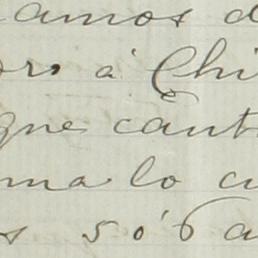 amos d
ors á Chi
que cant
ma lo cu
s 5 ó 6 a